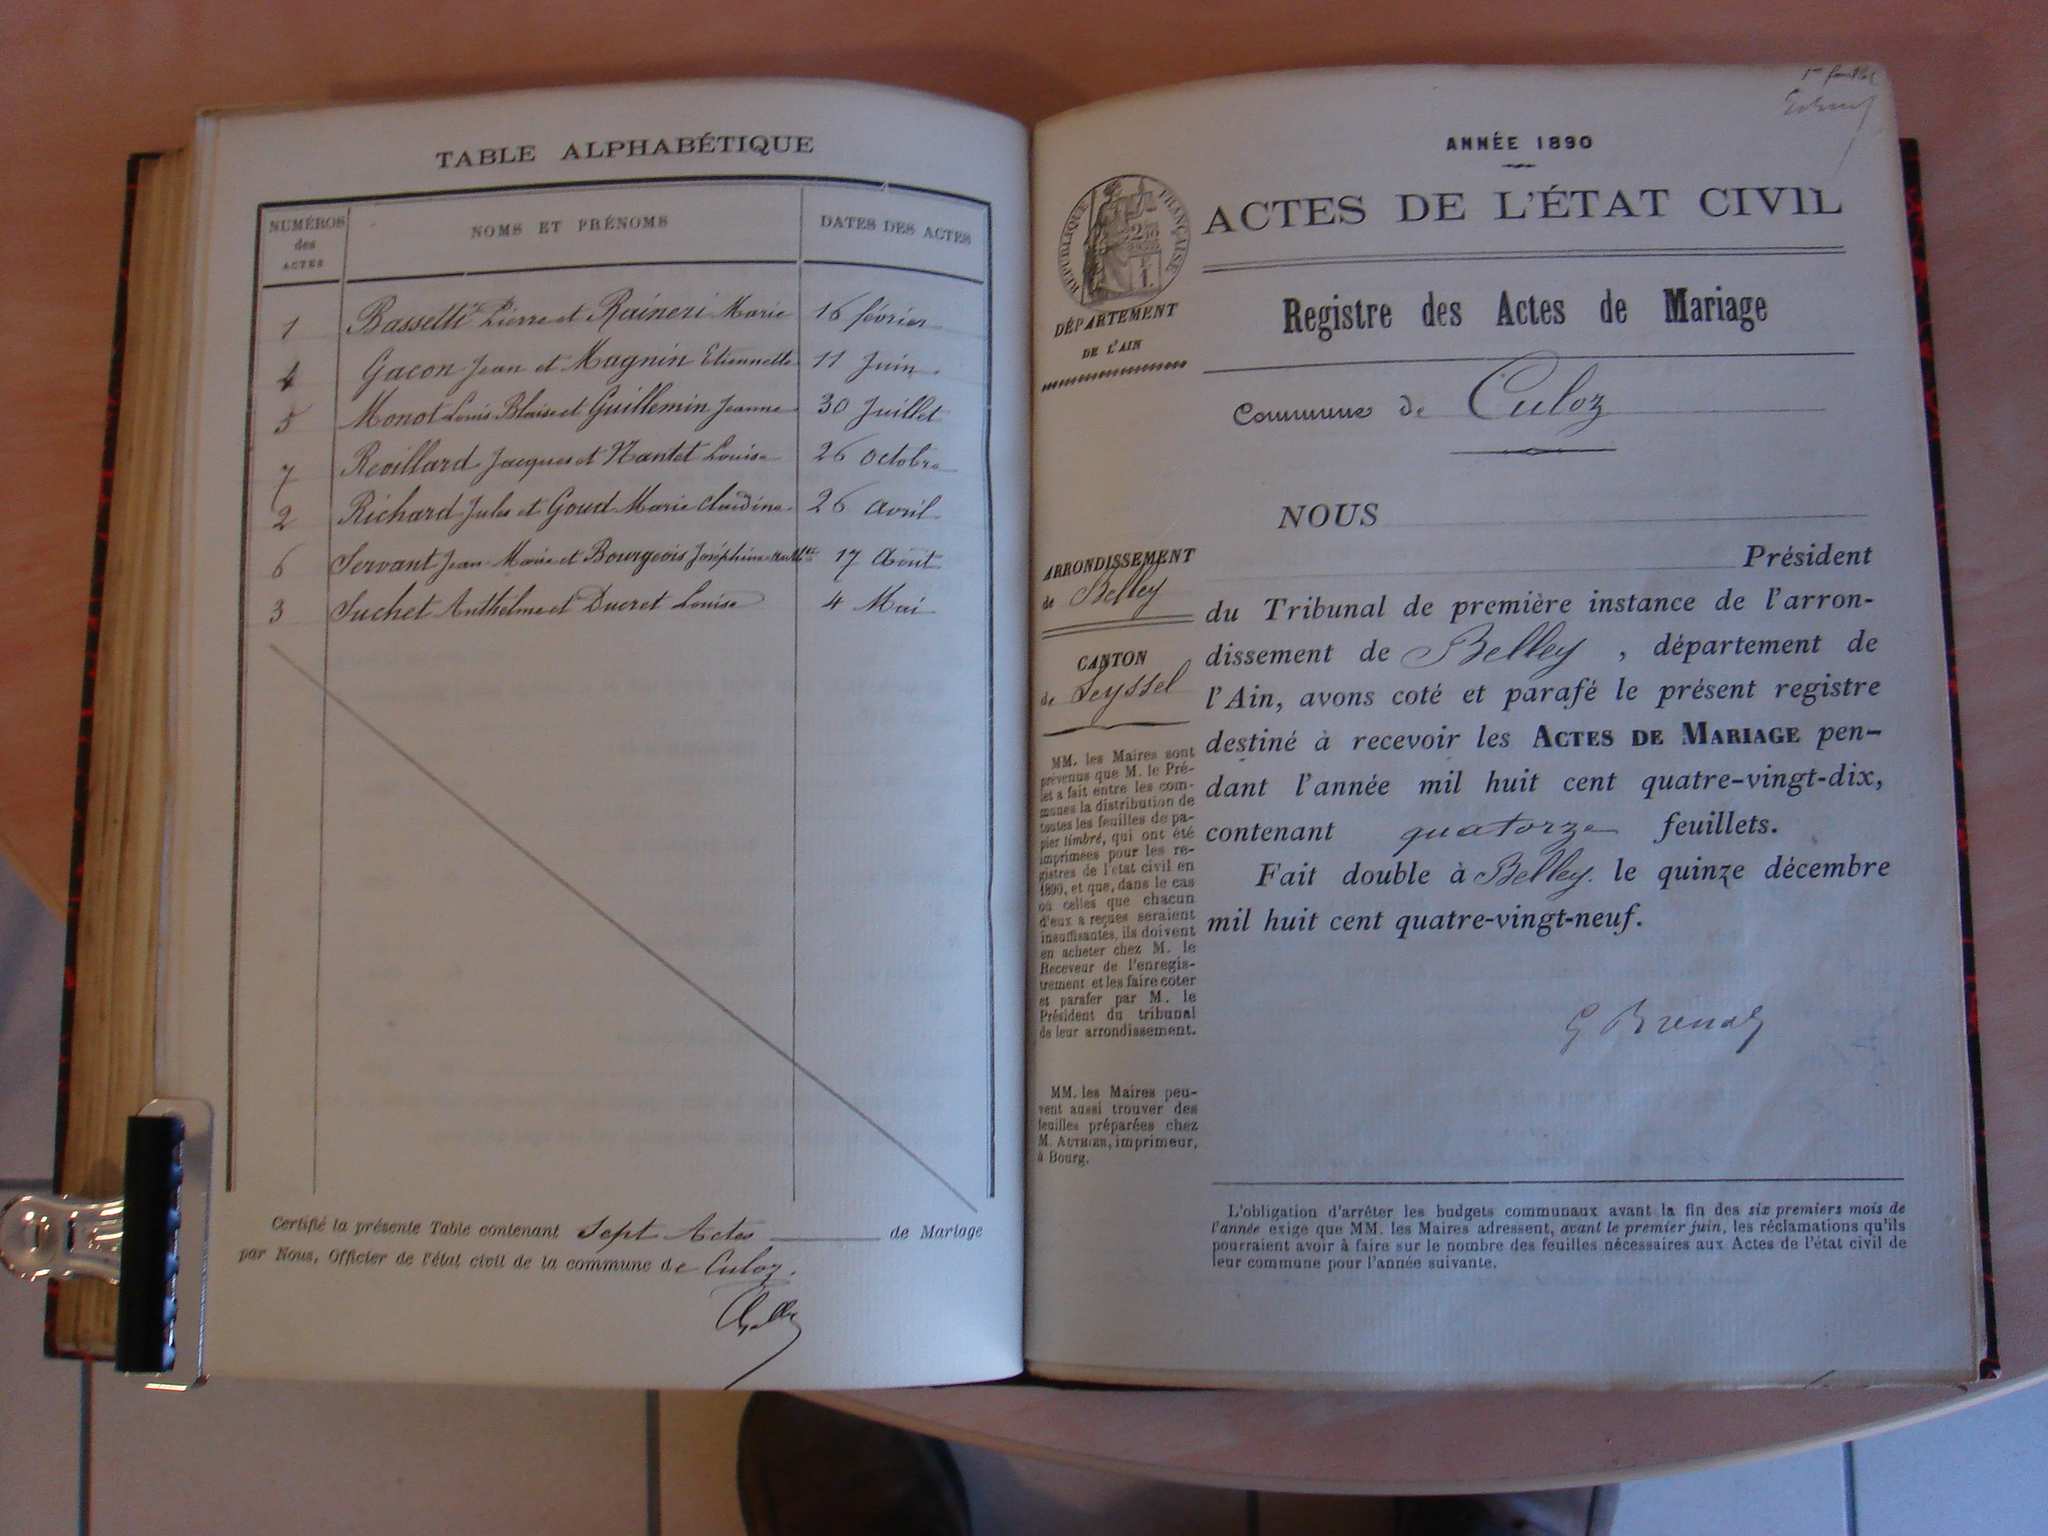 TABLE ALPHABÉTIQUE
NUMÉROS des ACTES
NOMS ET PRÉNOMS
DATES DES ACTES
1 Bassetti Pierre et Raineri Marie 16 février
4 Gacon Jean et Magnin Etiennette 11 Juin
5 Monot Louis Blaise et Guillemin Jeanne 30 Juillet
7 Revillard Jacques et Nantet Louise 26 octobre
2 Richard Jules et Goud Marie Claudine 26 avril
6 Servant Jean Marie et Bourgeois Joséphine 17 Août
3 Suchet Anthelme et Ducret Louise 4 Mai
Certifié la présente Table contenant Sept Actes de Mariage
par Nous, Officier de l'état civil de la commune de Culoz.
1er feuillet
ANNÉE 1890
ACTES DE L'ÉTAT CIVIL
RÉPUBLIQUE FRANÇAISE
DÉPARTEMENT
DE L'AIN
Registre des Actes de Mariage
Commune de Culoz
ARRONDISSEMENT
de Belley
CANTON
de Seyssel
MM. les Maires sont
prévenus que M. le Pré-
fet a fait entre les com-
munes la distribution de
toutes les feuilles de pa-
pier timbré, qui ont été
imprimées pour les re-
gistres de l'état civil en
1890, et que, dans le cas
où celles que chacun
d'eux a reçues seraient
insuffisantes, ils doivent
en acheter chez M. le
Receveur de l'enregis-
trement et les faire coter
et parafer par M. le
Président du tribunal
de leur arrondissement.
MM. les Maires peu-
vent aussi trouver des
feuilles préparées chez
M. AUTHIER, imprimeur,
à Bourg.
NOUS
Président
du Tribunal de première instance de l'arron-
dissement de Belley, département de
l'Ain, avons coté et parafé le présent registre
destiné à recevoir les ACTES DE MARIAGE pen-
dant l'année mil huit cent quatre-vingt-dix,
contenant quatorze feuillets.
Fait double à Belley. le quinze décembre
mil huit cent quatre-vingt-neuf.
L'obligation d'arrêter les budgets communaux avant la fin des six premiers mois de
l'année exige que MM. les Maires adressent, avant le premier juin, les réclamations qu'ils
pourraient avoir à faire sur le nombre des feuilles nécessaires aux Actes de l'état civil de
leur commune pour l'année suivante.